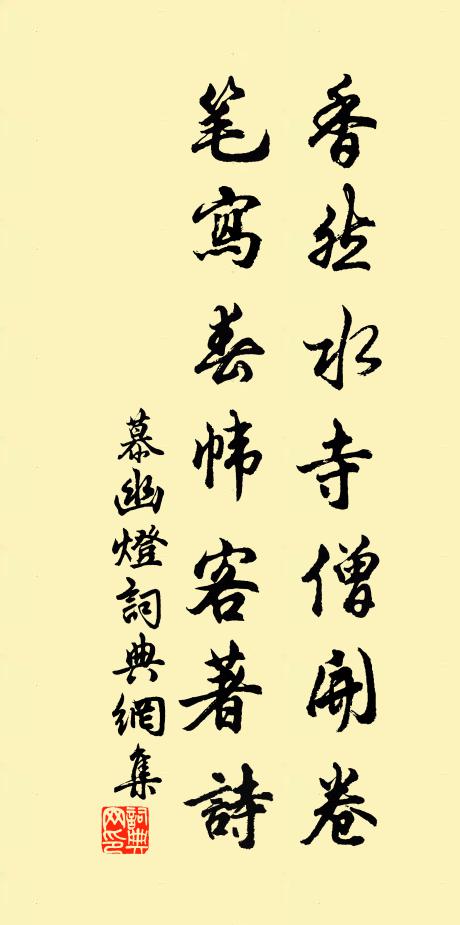 香然水寺僧開卷
笔寫春幃客著詩
慕幽燈詞典網集
詞典网印